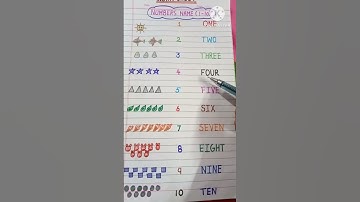 NUMBERS NAME (1-10)
1 ONE
2 TWO
3 THREE
4 FOUR
5 FIVE
6 SIX
7 SEVEN
8 EIGHT
9 NINE
10 TEN